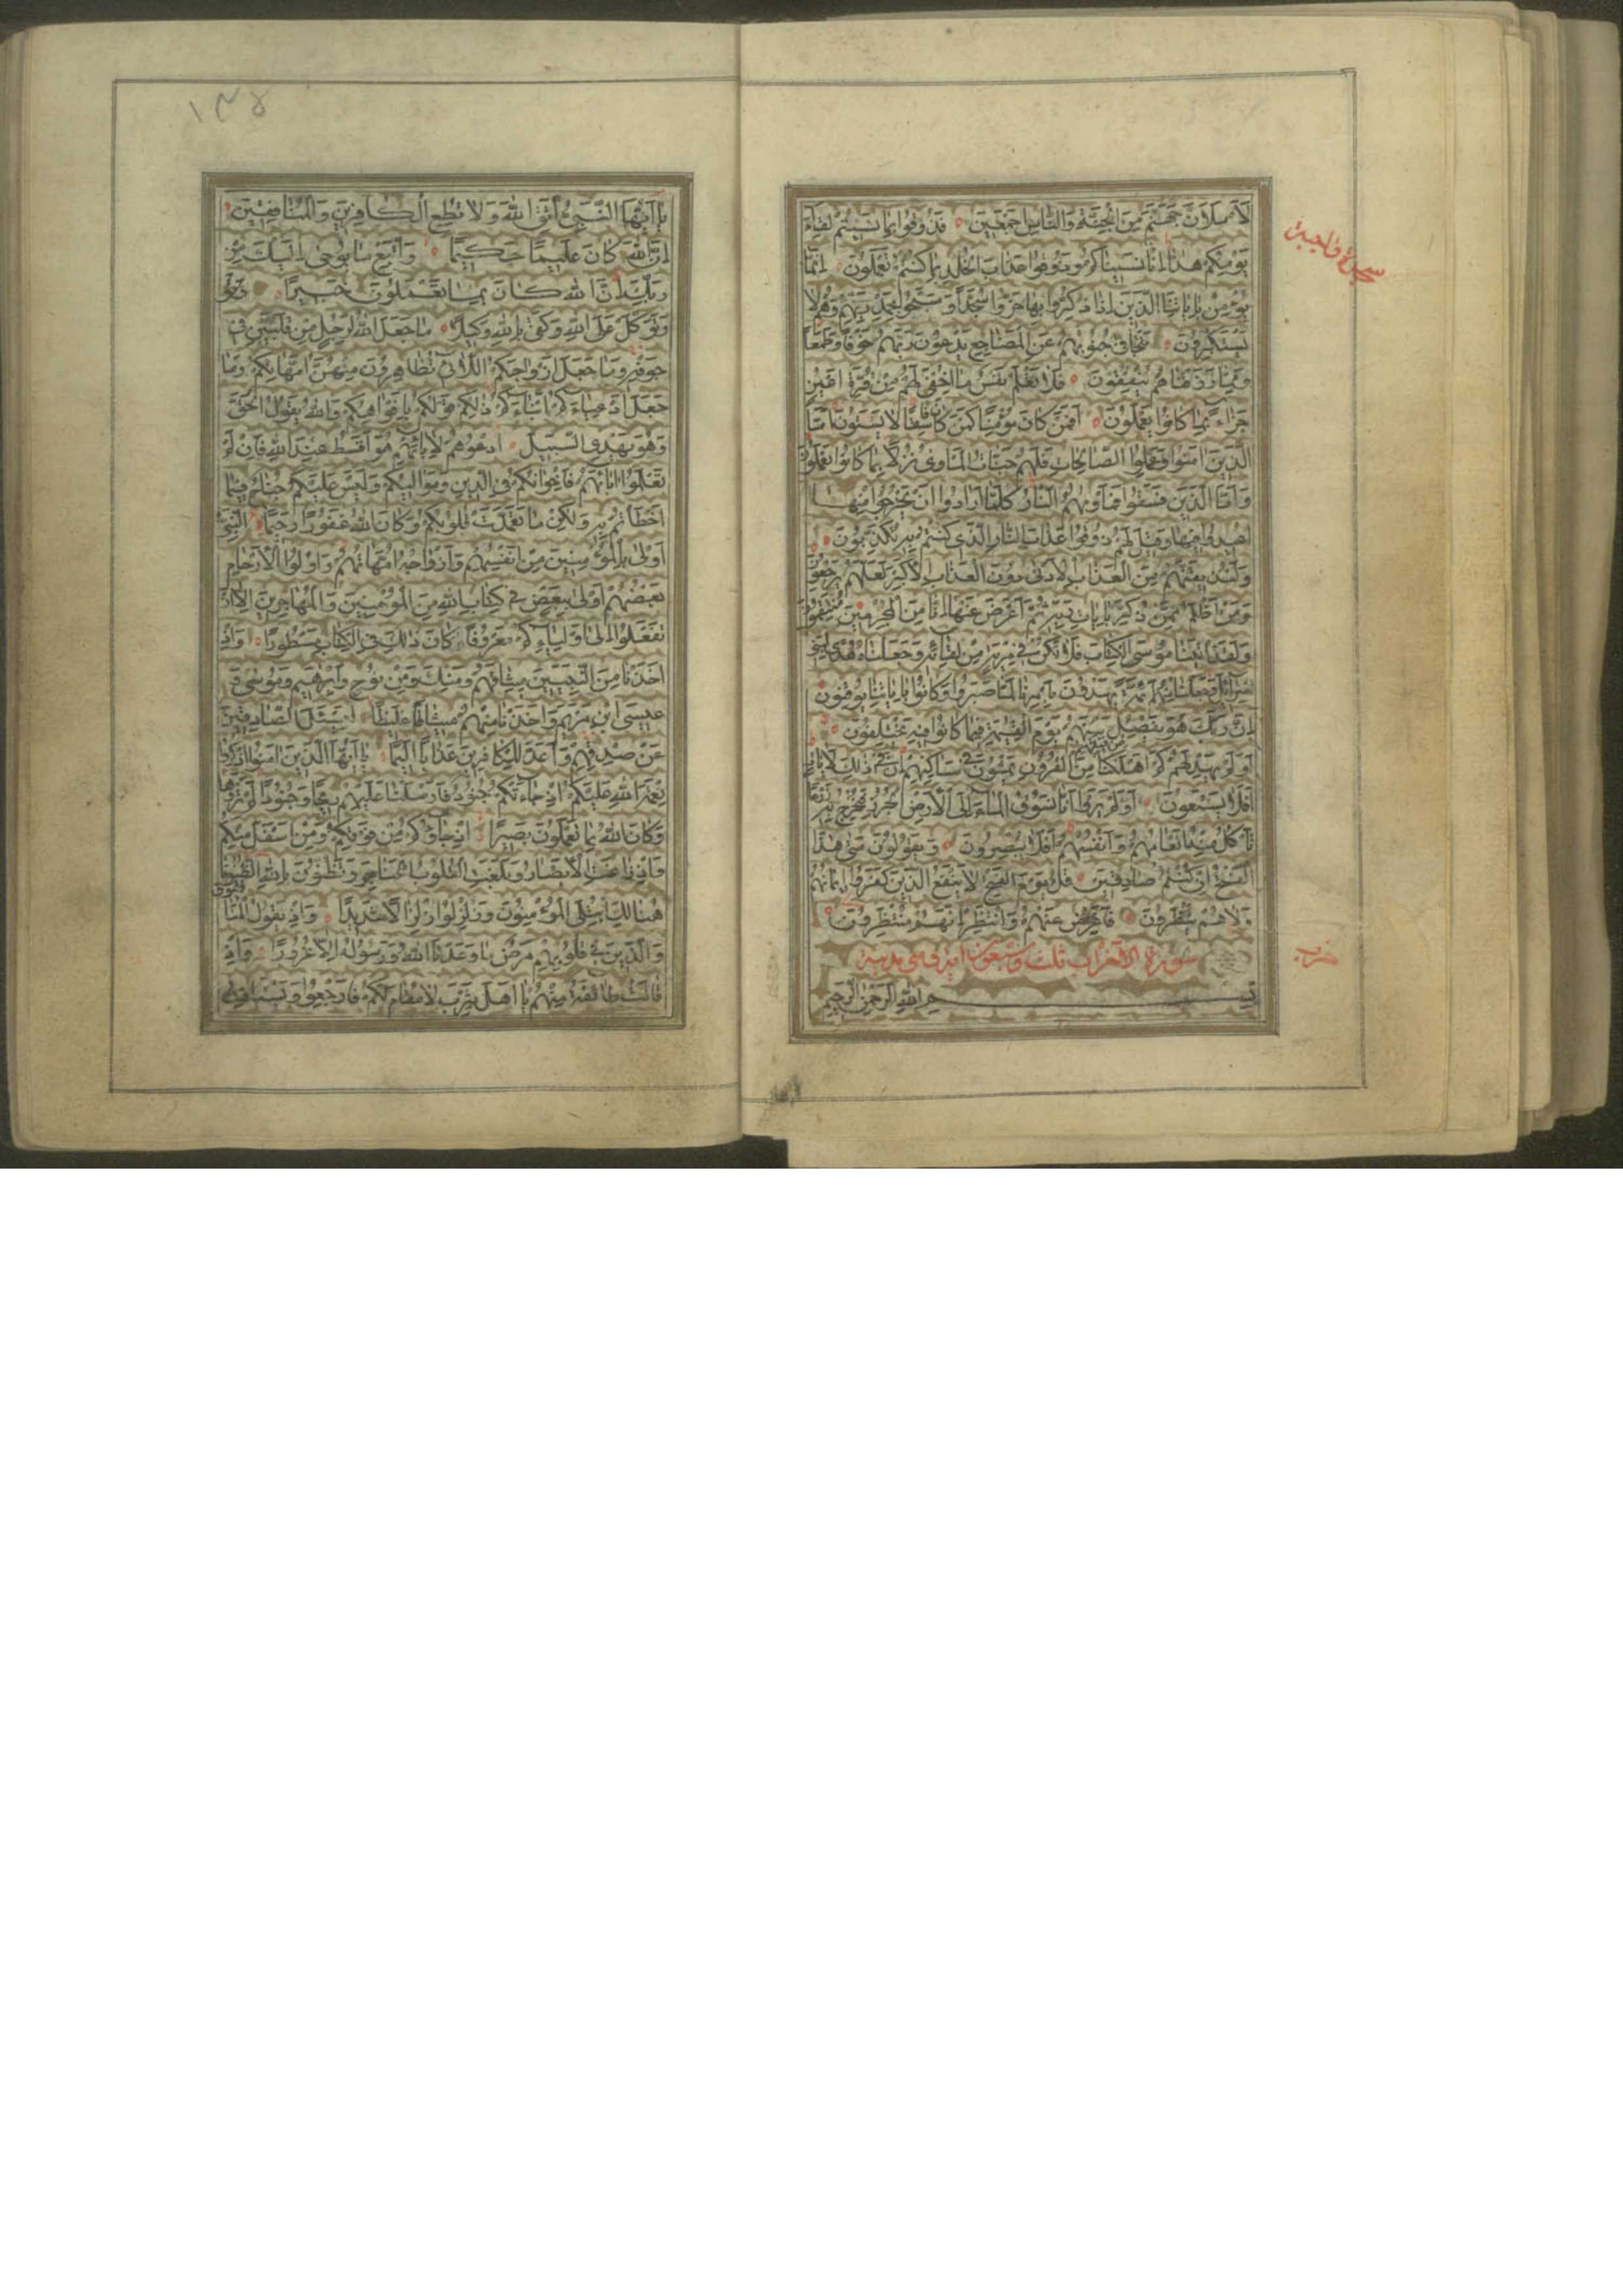 لَأَمْلَأَنَّ جَهَنَّمَ مِنَ الْجِنَّةِ وَالنَّاسِ أَجْمَعِينَ فَذُوقُوا بِمَا نَسِيتُمْ لِقَاءَ
سجدة واجبة
يَوْمِكُمْ هٰذَا إِنَّا نَسِينَاكُمْ وَذُوقُوا عَذَابَ الْخُلْدِ بِمَا كُنْتُمْ تَعْمَلُونَ إِنَّمَا
يُؤْمِنُ بِآيَاتِنَا الَّذِينَ إِذَا ذُكِّرُوا بِهَا خَرُّوا سُجَّدًا وَسَبَّحُوا بِحَمْدِ رَبِّهِمْ وَهُمْ لَا
يَسْتَكْبِرُونَ تَتَجَافَى جُنُوبُهُمْ عَنِ الْمَضَاجِعِ يَدْعُونَ رَبَّهُمْ خَوْفًا وَطَمَعًا
وَمِمَّا رَزَقْنَاهُمْ يُنْفِقُونَ فَلَا تَعْلَمُ نَفْسٌ مَا أُخْفِيَ لَهُمْ مِنْ قُرَّةِ أَعْيُنٍ
جَزَاءً بِمَا كَانُوا يَعْمَلُونَ أَفَمَنْ كَانَ مُؤْمِنًا كَمَنْ كَانَ فَاسِقًا لَا يَسْتَوُونَ أَمَّا
الَّذِينَ آمَنُوا وَعَمِلُوا الصَّالِحَاتِ فَلَهُمْ جَنَّاتُ الْمَأْوَى نُزُلًا بِمَا كَانُوا يَعْمَلُونَ
وَأَمَّا الَّذِينَ فَسَقُوا فَمَأْوَيهُمُ النَّارُ كُلَّمَا أَرَادُوا أَنْ يَخْرُجُوا مِنْهَا
أُعِيدُوا فِيهَا وَقِيلَ لَهُمْ ذُوقُوا عَذَابَ النَّارِ الَّذِي كُنْتُمْ بِهِ تُكَذِّبُونَ
وَلَنُذِيقَنَّهُمْ مِنَ الْعَذَابِ الْأَدْنَى دُونَ الْعَذَابِ الْأَكْبَرِ لَعَلَّهُمْ يَرْجِعُونَ
وَمَنْ أَظْلَمُ مِمَّنْ ذُكِّرَ بِآيَاتِ رَبِّهِ ثُمَّ أَعْرَضَ عَنْهَا إِنَّا مِنَ الْمُجْرِمِينَ مُنْتَقِمُونَ
وَلَقَدْ آتَيْنَا مُوسَى الْكِتَابَ فَلَا تَكُنْ فِي مِرْيَةٍ مِنْ لِقَائِهِ وَجَعَلْنَاهُ هُدًى لِبَنِي
إِسْرَائِيلَ وَجَعَلْنَا مِنْهُمْ أَئِمَّةً يَهْدُونَ بِأَمْرِنَا لَمَّا صَبَرُوا وَكَانُوا بِآيَاتِنَا يُوقِنُونَ
إِنَّ رَبَّكَ هُوَ يَفْصِلُ بَيْنَهُمْ يَوْمَ الْقِيٰمَةِ فِيمَا كَانُوا فِيهِ يَخْتَلِفُونَ
أَوَلَمْ يَهْدِ لَهُمْ كَمْ أَهْلَكْنَا مِنْ قَبْلِهِمْ مِنَ الْقُرُونِ يَمْشُونَ فِي مَسَاكِنِهِمْ إِنَّ فِي ذٰلِكَ لَآيَاتٍ
أَفَلَا يَسْمَعُونَ أَوَلَمْ يَرَوْا أَنَّا نَسُوقُ الْمَاءَ إِلَى الْأَرْضِ الْجُرُزِ فَنُخْرِجُ بِهِ زَرْعًا
تَأْكُلُ مِنْهُ أَنْعَامُهُمْ وَأَنْفُسُهُمْ أَفَلَا يُبْصِرُونَ وَيَقُولُونَ مَتَى هٰذَا
الْفَتْحُ إِنْ كُنْتُمْ صَادِقِينَ قُلْ يَوْمَ الْفَتْحِ لَا يَنْفَعُ الَّذِينَ كَفَرُوا إِيمَانُهُمْ
وَلَا هُمْ يُنْظَرُونَ فَأَعْرِضْ عَنْهُمْ وَانْتَظِرْ إِنَّهُمْ مُنْتَظِرُونَ
سورة الأحزاب ثلث وسبعون آية وهي مدنية
حزب
بِسْمِ اللهِ الرَّحْمٰنِ الرَّحِيمِ
يَا أَيُّهَا النَّبِيُّ اتَّقِ اللهَ وَلَا تُطِعِ الْكَافِرِينَ وَالْمُنَافِقِينَ
إِنَّ اللهَ كَانَ عَلِيمًا حَكِيمًا وَاتَّبِعْ مَا يُوحَى إِلَيْكَ مِنْ
رَبِّكَ إِنَّ اللهَ كَانَ بِمَا تَعْمَلُونَ خَبِيرًا
وَتَوَكَّلْ عَلَى اللهِ وَكَفَى بِاللهِ وَكِيلًا مَا جَعَلَ اللهُ لِرَجُلٍ مِنْ قَلْبَيْنِ فِي
جَوْفِهِ وَمَا جَعَلَ أَزْوَاجَكُمُ اللَّائِي تُظَاهِرُونَ مِنْهُنَّ أُمَّهَاتِكُمْ وَمَا
جَعَلَ أَدْعِيَاءَكُمْ أَبْنَاءَكُمْ ذٰلِكُمْ قَوْلُكُمْ بِأَفْوَاهِكُمْ وَاللهُ يَقُولُ الْحَقَّ
وَهُوَ يَهْدِي السَّبِيلَ ادْعُوهُمْ لِآبَائِهِمْ هُوَ أَقْسَطُ عِنْدَ اللهِ فَإِنْ لَمْ
تَعْلَمُوا آبَاءَهُمْ فَإِخْوَانُكُمْ فِي الدِّينِ وَمَوَالِيكُمْ وَلَيْسَ عَلَيْكُمْ جُنَاحٌ فِيمَا
أَخْطَأْتُمْ بِهِ وَلٰكِنْ مَا تَعَمَّدَتْ قُلُوبُكُمْ وَكَانَ اللهُ غَفُورًا رَحِيمًا النَّبِيُّ
أَوْلَى بِالْمُؤْمِنِينَ مِنْ أَنْفُسِهِمْ وَأَزْوَاجُهُ أُمَّهَاتُهُمْ وَأُولُوا الْأَرْحَامِ
بَعْضُهُمْ أَوْلَى بِبَعْضٍ فِي كِتَابِ اللهِ مِنَ الْمُؤْمِنِينَ وَالْمُهَاجِرِينَ إِلَّا أَنْ
تَفْعَلُوا إِلَى أَوْلِيَاءِكُمْ مَعْرُوفًا كَانَ ذٰلِكَ فِي الْكِتَابِ مَسْطُورًا وَإِذْ
أَخَذْنَا مِنَ النَّبِيِّينَ مِيثَاقَهُمْ وَمِنْكَ وَمِنْ نُوحٍ وَإِبْرٰهِيمَ وَمُوسَى وَ
عِيسَى ابْنِ مَرْيَمَ وَأَخَذْنَا مِنْهُمْ مِيثَاقًا غَلِيظًا لِيَسْئَلَ الصَّادِقِينَ
عَنْ صِدْقِهِمْ وَأَعَدَّ لِلْكَافِرِينَ عَذَابًا أَلِيمًا يَا أَيُّهَا الَّذِينَ آمَنُوا اذْكُرُوا
نِعْمَةَ اللهِ عَلَيْكُمْ إِذْ جَاءَتْكُمْ جُنُودٌ فَأَرْسَلْنَا عَلَيْهِمْ رِيحًا وَجُنُودًا لَمْ تَرَوْهَا
وَكَانَ اللهُ بِمَا تَعْمَلُونَ بَصِيرًا إِذْ جَاؤُكُمْ مِنْ فَوْقِكُمْ وَمِنْ أَسْفَلَ مِنْكُمْ
وَإِذْ زَاغَتِ الْأَبْصَارُ وَبَلَغَتِ الْقُلُوبُ الْحَنَاجِرَ وَتَظُنُّونَ بِاللهِ الظُّنُونَا
هُنَالِكَ ابْتُلِيَ الْمُؤْمِنُونَ وَزُلْزِلُوا زِلْزَالًا شَدِيدًا وَإِذْ يَقُولُ الْمُنَافِقُونَ
وَالَّذِينَ فِي قُلُوبِهِمْ مَرَضٌ مَا وَعَدَنَا اللهُ وَرَسُولُهُ إِلَّا غُرُورًا وَإِذْ
قَالَتْ طَائِفَةٌ مِنْهُمْ يَا أَهْلَ يَثْرِبَ لَا مُقَامَ لَكُمْ فَارْجِعُوا وَيَسْتَأْذِنُ